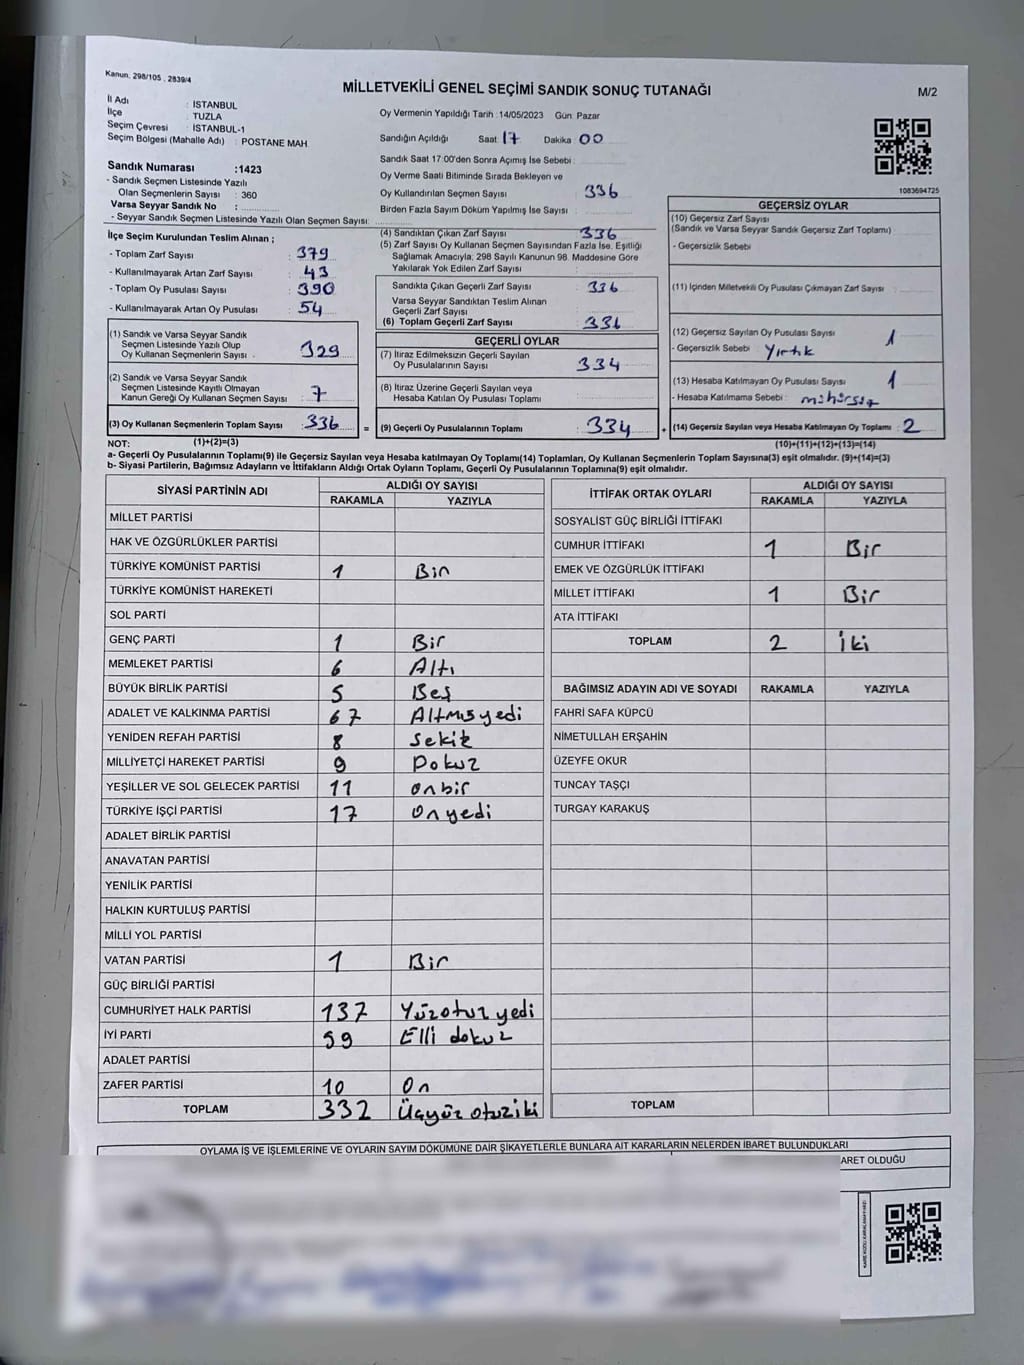 Kanun, 298/105 , 2839/4
MİLLETVEKİLİ GENEL SEÇİMİ SANDIK SONUÇ TUTANAĞI
M/2
İl Adı : İSTANBUL
İlçe : TUZLA
Seçim Çevresi : İSTANBUL-1
Seçim Bölgesi (Mahalle Adı) : POSTANE MAH
Sandık Numarası :1423
- Sandık Seçmen Listesinde Yazılı
Olan Seçmenlerin Sayısı : 360
Varsa Seyyar Sandık No :
- Seyyar Sandık Seçmen Listesinde Yazılı Olan Seçmen Sayısı:
Oy Vermenin Yapıldığı Tarih : 14/05/2023 Gün: Pazar
Sandığın Açıldığı Saat 17 Dakika 00
Sandık Saat 17:00'den Sonra Açımış İse Sebebi :
Oy Verme Saati Bitiminde Sırada Bekleyen ve
Oy Kullandırılan Seçmen Sayısı : 336
Birden Fazla Sayım Döküm Yapılmış İse Sayısı :
1083694725
İlçe Seçim Kurulundan Teslim Alınan ;
- Toplam Zarf Sayısı : 379
- Kullanılmayarak Artan Zarf Sayısı : 43
- Toplam Oy Pusulası Sayısı : 390
- Kullanılmayarak Artan Oy Pusulası : 54
(1) Sandık ve Varsa Seyyar Sandık
Seçmen Listesinde Yazılı Olup
Oy Kullanan Seçmenlerin Sayısı : 329
(2) Sandık ve Varsa Seyyar Sandık
Seçmen Listesinde Kayıtlı Olmayan
Kanun Gereği Oy Kullanan Seçmen Sayısı : 7
(3) Oy Kullanan Seçmenlerin Toplam Sayısı : 336
(1)+(2)=(3)
(4) Sandıktan Çıkan Zarf Sayısı : 336
(5) Zarf Sayısı Oy Kullanan Seçmen Sayısından Fazla İse, Eşitliği
Sağlamak Amacıyla; 298 Sayılı Kanunun 98. Maddesine Göre
Yakılarak Yok Edilen Zarf Sayısı :
Sandıkta Çıkan Geçerli Zarf Sayısı : 336
Varsa Seyyar Sandıktan Teslim Alınan
Geçerli Zarf Sayısı :
(6) Toplam Geçerli Zarf Sayısı : 336
GEÇERLİ OYLAR
(7) İtiraz Edilmeksizin Geçerli Sayılan
Oy Pusulalarının Sayısı : 334
(8) İtiraz Üzerine Geçerli Sayılan veya
Hesaba Katılan Oy Pusulası Toplamı :
= (9) Geçerli Oy Pusulalarının Toplamı : 334 +
GEÇERSİZ OYLAR
(10) Geçersiz Zarf Sayısı
(Sandık ve Varsa Seyyar Sandık Geçersiz Zarf Toplamı) :
- Geçersizlik Sebebi :
(11) İçinden Milletvekili Oy Pusulası Çıkmayan Zarf Sayısı :
(12) Geçersiz Sayılan Oy Pusulası Sayısı : 1
- Geçersizlik Sebebi : Yırtık
(13) Hesaba Katılmayan Oy Pusulası Sayısı : 1
- Hesaba Katılmama Sebebi : mühürsüz
(14) Geçersiz Sayılan veya Hesaba Katılmayan Oy Toplamı : 2
(10)+(11)+(12)+(13)=(14)
NOT:
a- Geçerli Oy Pusulalarının Toplamı(9) ile Geçersiz Sayılan veya Hesaba katılmayan Oy Toplamı(14) Toplamları, Oy Kullanan Seçmenlerin Toplam Sayısına(3) eşit olmalıdır. (9)+(14)=(3)
b- Siyasi Partilerin, Bağımsız Adayların ve İttifakların Aldığı Ortak Oyların Toplamı, Geçerli Oy Pusulalarının Toplamına(9) eşit olmalıdır.
SİYASİ PARTİNİN ADI ALDIĞI OY SAYISI
RAKAMLA YAZIYLA
MİLLET PARTİSİ
HAK VE ÖZGÜRLÜKLER PARTİSİ
TÜRKİYE KOMÜNİST PARTİSİ 1 Bir
TÜRKİYE KOMÜNİST HAREKETİ
SOL PARTİ
GENÇ PARTİ 1 Bir
MEMLEKET PARTİSİ 6 Altı
BÜYÜK BİRLİK PARTİSİ 5 Beş
ADALET VE KALKINMA PARTİSİ 67 Altmış yedi
YENİDEN REFAH PARTİSİ 8 Sekiz
MİLLİYETÇİ HAREKET PARTİSİ 9 Dokuz
YEŞİLLER VE SOL GELECEK PARTİSİ 11 Onbir
TÜRKİYE İŞÇİ PARTİSİ 17 Onyedi
ADALET BİRLİK PARTİSİ
ANAVATAN PARTİSİ
YENİLİK PARTİSİ
HALKIN KURTULUŞ PARTİSİ
MİLLİ YOL PARTİSİ
VATAN PARTİSİ 1 Bir
GÜÇ BİRLİĞİ PARTİSİ
CUMHURİYET HALK PARTİSİ 137 Yüzotuz yedi
İYİ PARTİ 59 Elli dokuz
ADALET PARTİSİ
ZAFER PARTİSİ 10 On
TOPLAM 332 Üçyüz otuziki
İTTİFAK ORTAK OYLARI ALDIĞI OY SAYISI
RAKAMLA YAZIYLA
SOSYALİST GÜÇ BİRLİĞİ İTTİFAKI
CUMHUR İTTİFAKI 1 Bir
EMEK VE ÖZGÜRLÜK İTTİFAKI
MİLLET İTTİFAKI 1 Bir
ATA İTTİFAKI
TOPLAM 2 İki
BAĞIMSIZ ADAYIN ADI VE SOYADI RAKAMLA YAZIYLA
FAHRİ SAFA KÜPCÜ
NİMETULLAH ERŞAHİN
ÜZEYFE OKUR
TUNCAY TAŞÇI
TURGAY KARAKUŞ
TOPLAM
OYLAMA İŞ VE İŞLEMLERİNE VE OYLARIN SAYIM DÖKÜMÜNE DAİR ŞİKAYETLERLE BUNLARA AİT KARARLARIN NELERDEN İBARET BULUNDUKLARI
ARET OLDUĞU